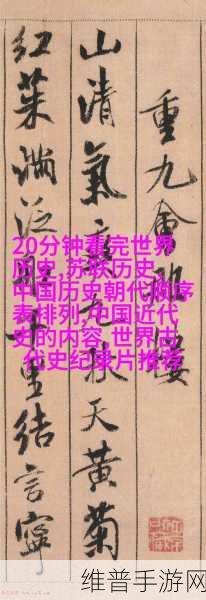 重九會
山清氣 秋天黃菊
紅茱滿泛 里結言寧
20分钟看完世界
历史,苏联历史,
中国历史朝代顺序
表排列,中国近代
史的内容,世界古
代史纪录片推荐
维普手游网